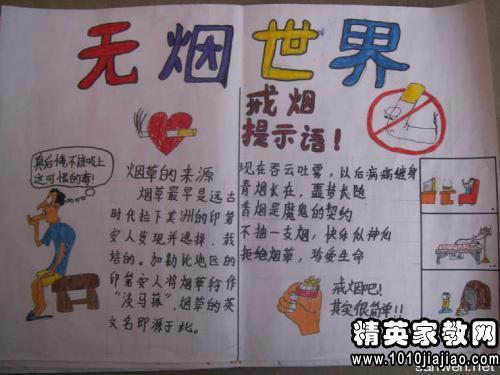 无烟世界
真后悔不该吸上
这可恨的毒!
烟草的来源
烟草最早是远古
时代拉丁美洲的印第
安人发现并选择、栽
培的。加勒比地区的
印第安人将烟草称作
“淡马菰”,烟草的英
文名即源于此。
戒烟
提示语!
现在吞云吐雾,以后病痛缠身
青烟长在,噩梦长随
香烟是魔鬼的契约
不抽一支烟,快乐似神仙
拒绝烟草,珍爱生命
戒烟吧!
其实很简单!!
精英家教网
www.1010jiajiao.com
sanwen.net